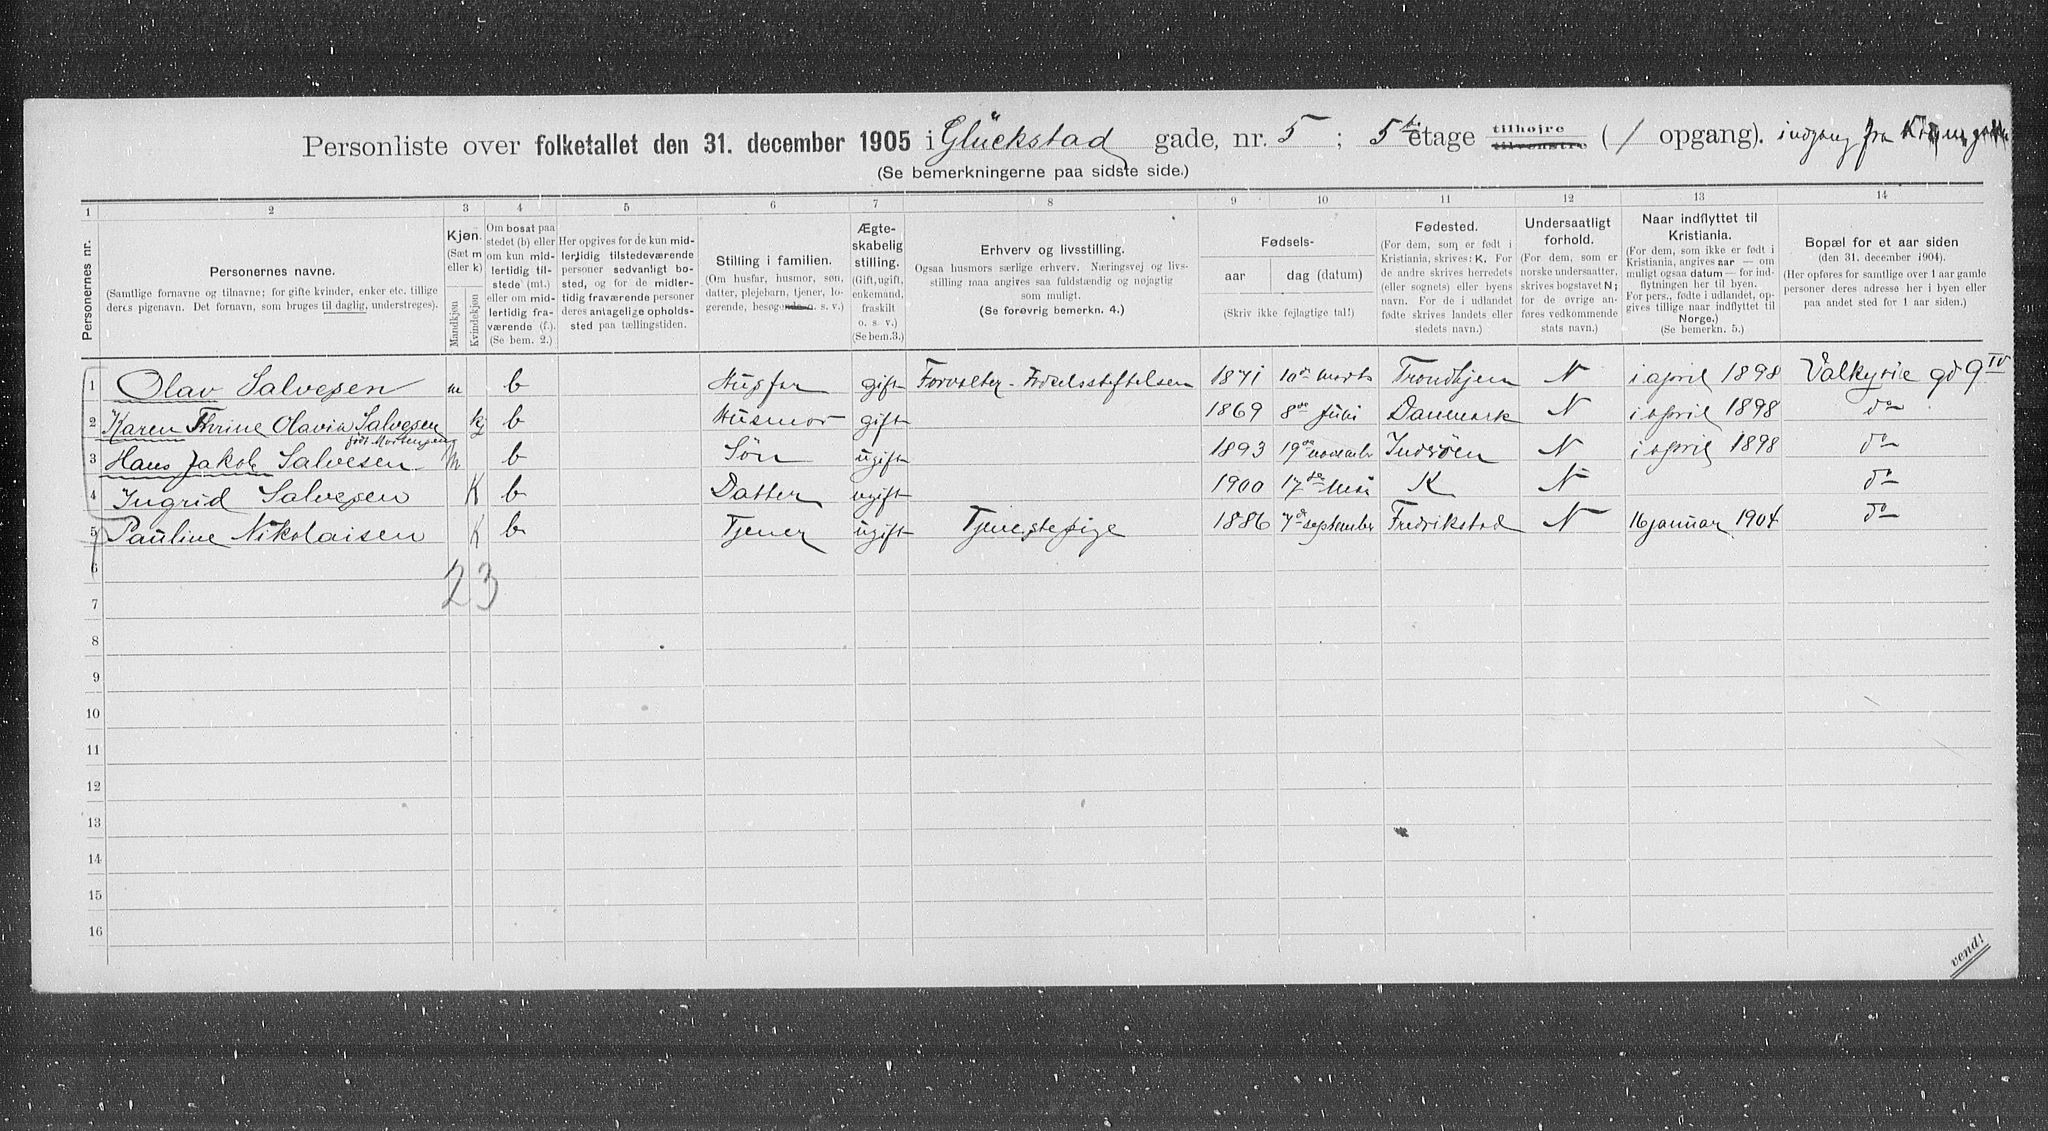 Personliste over folketallet den 31. december 1905 i Glückstad gade, nr. 5 ; 5te etage tilhøjre tilvenstre ( / opgang). indgang fra
(Se bemerkningerne paa sidste side.)
1 2 3 4 5 6 7 8 9 10 11 12 13 14
Personernes nr.
Personernes navne.
(Samtlige fornavne og tilnavne; for gifte kvinder, enker etc. tillige
deres pigenavn. Det fornavn, som bruges til daglig, understreges).
Kjøn.
(Sæt m
eller k)
Mandkjøn
Kvindekjøn
Om bosat paa
stedet (b) eller
om kun mid-
lertidig til-
stede (mt.)
eller om mid-
lertidig fra-
værende (f.).
(Se bem. 2.)
Her opgives for de kun mid-
lertidig tilstedeværende
personer sedvanligt bo-
sted, og for de midler-
tidig fraværende personer
deres antagelige opholds-
sted paa tællingstiden.
Stilling i familien.
(Om husfar, husmor, søn,
datter, plejebarn, tjener, lo-
gerende, besøgende o. s. v.)
Ægte-
skabelig
stilling.
(Gift, ugift,
enkemand,
fraskilt
o. s. v.)
(Se bem. 3.)
Erhverv og livsstilling.
Ogsaa husmors særlige erhverv. Næringsvej og livs-
stilling maa angives saa fuldstændig og nøjagtig
som muligt.
(Se forøvrig bemerkn. 4.)
Fødsels-
aar dag (datum)
(Skriv ikke fejlagtige tal!)
Fødested.
(For dem, som er født i
Kristiania, skrives: K. For
de andre skrives herredets
(eller sognets) eller byens
navn. For de i udlandet
fødte skrives landets eller
stedets navn.)
Undersaatligt
forhold.
(For dem, som er
norske undersaatter,
skrives bogstavet N;
for de øvrige an-
føres vedkommende
stats navn.)
Naar indflyttet til
Kristiania.
(For dem, som ikke er født i
Kristiania, angives aar — om
muligt ogsaa datum — for ind-
flytningen her til byen.
For pers., fødte i udlandet, op-
gives tillige naar indflyttet til
Norge.)
(Se bemerkn. 5.)
Bopæl for et aar siden
(den 31. december 1904).
(Her opføres for samtlige over 1 aar gamle
personer deres adresse her i byen eller
paa andet sted for 1 aar siden.)
1 Olav Salvesen m b Husfar gift Forvalter - Fødselsstiftelsen 1871 10de marts Trondhjem N i april 1898 Valkyrie gd 9 IV
2 Karen Thrine Olavia Salvesen k b Husmor gift 1869 8de Juli Danmark N i april 1898 do
født Mortensen
3 Hans Jakob Salvesen m b Søn ugift 1893 19de november Inderøen N i april 1898 do
4 Ingrid Salvesen K b Datter ugift 1900 17de Mai K N do
5 Pauline Nikolaisen K b Tjener ugift Tjenestepige 1886 7de september Fredrikstad N 16 januar 1904 do
6
23
7
8
9
10
11
12
13
14
15
16
vend!